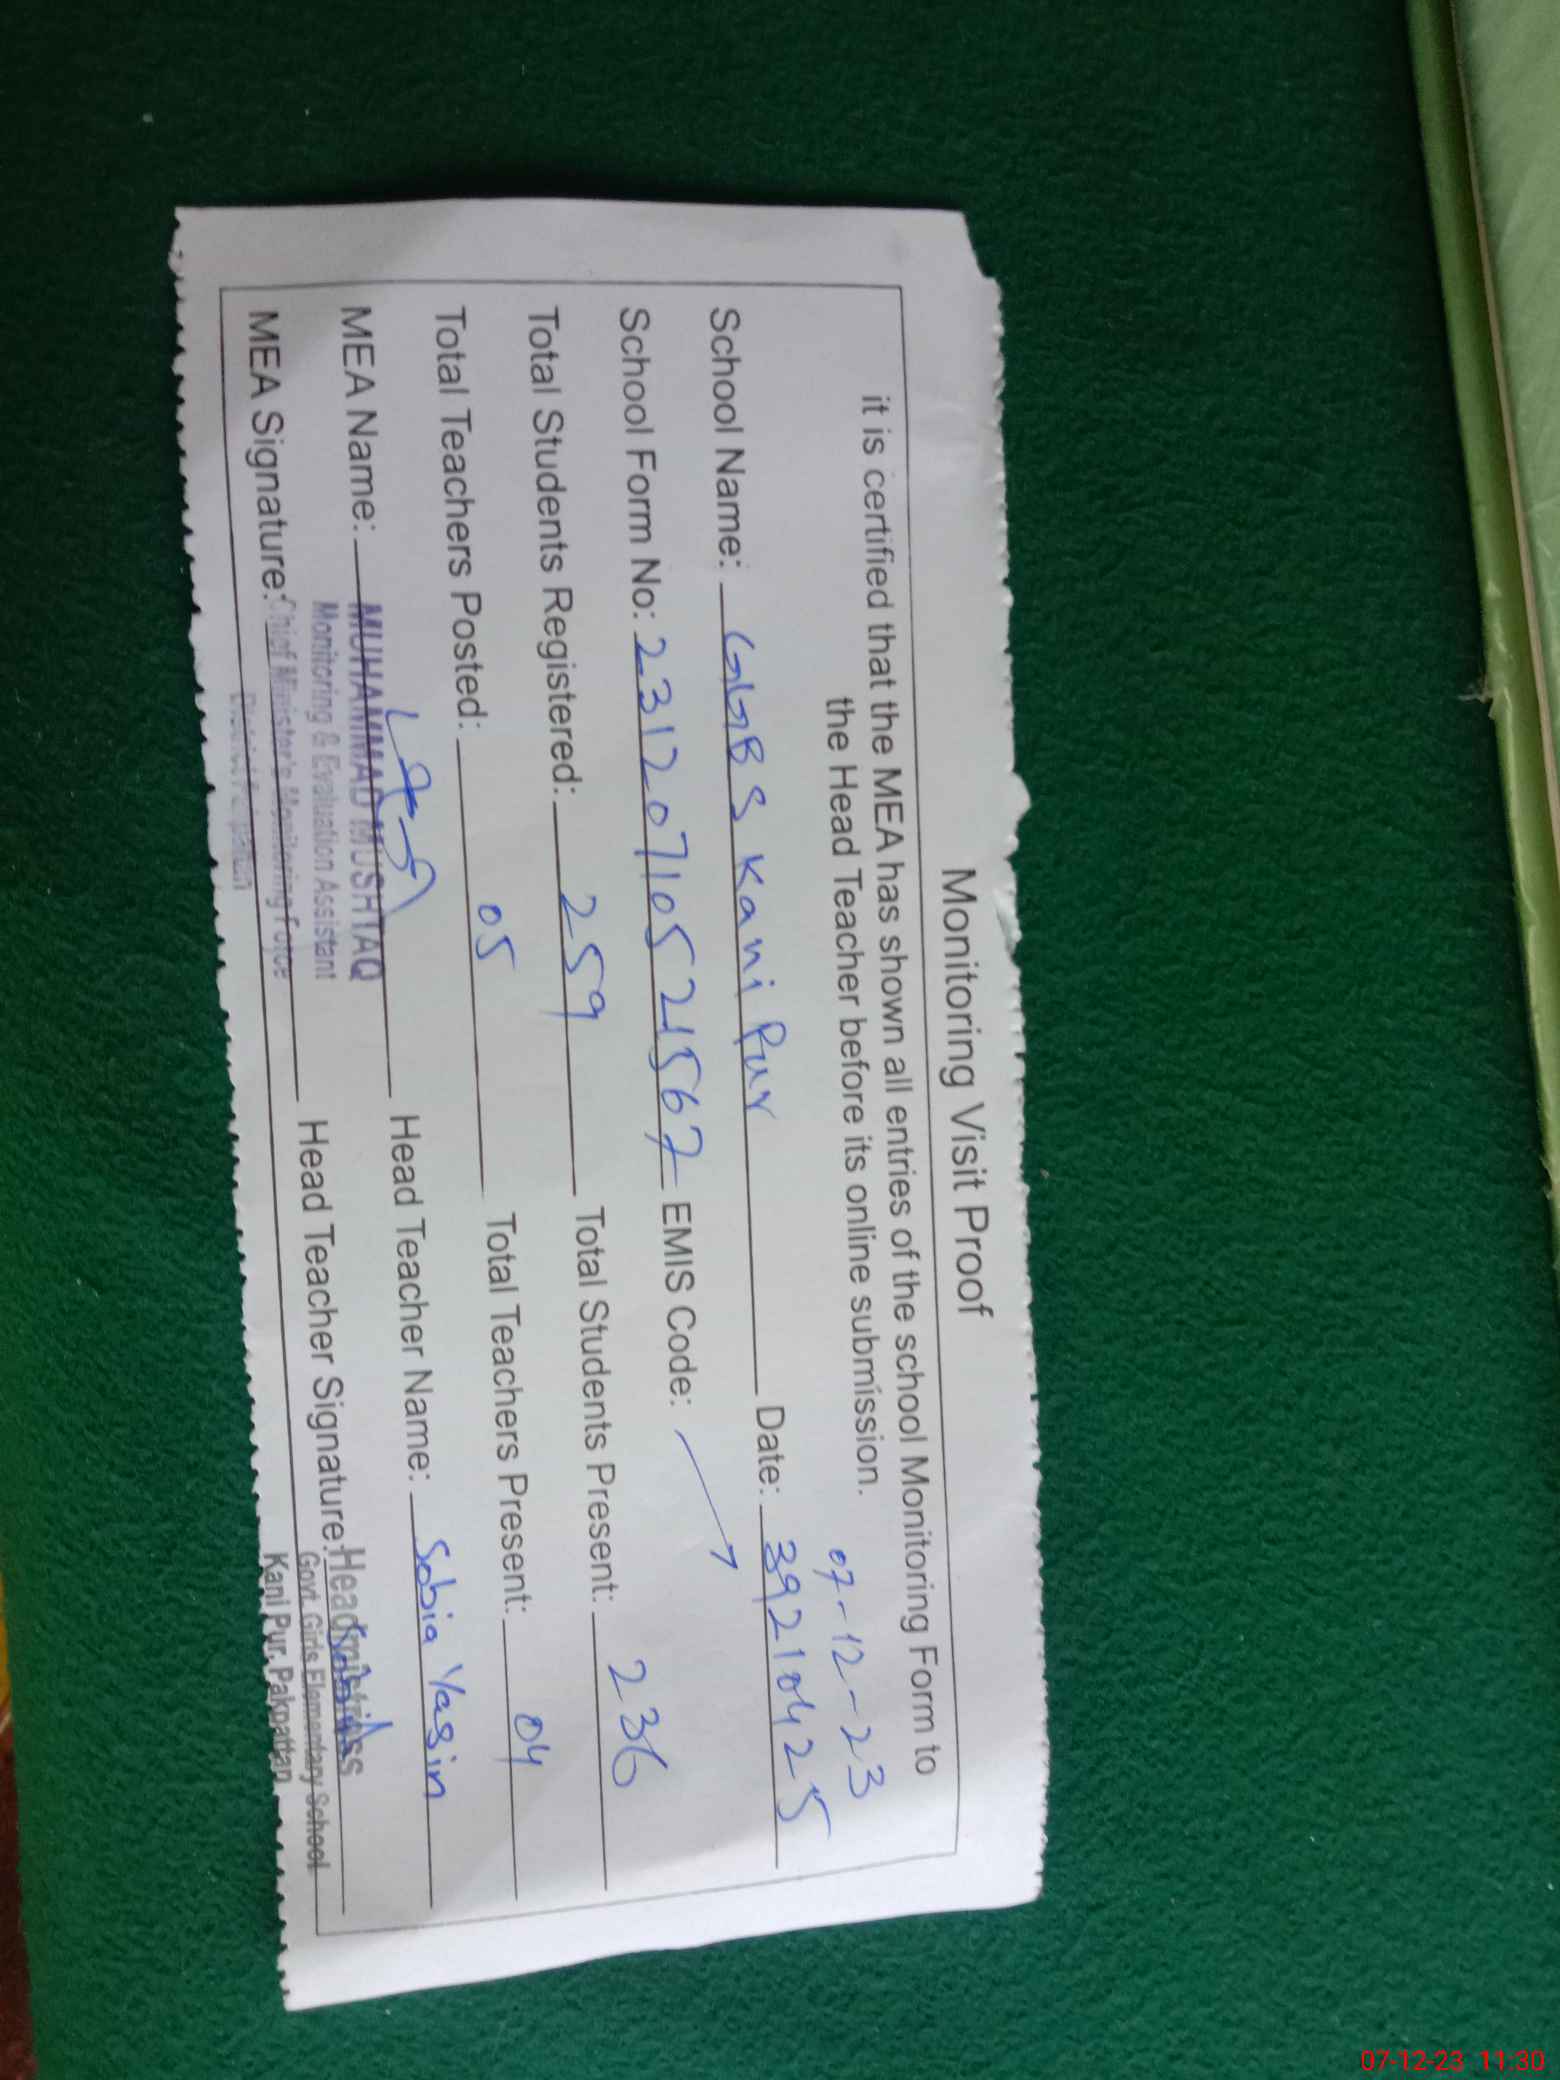 Monitoring Visit Proof
it is certified that the MEA has shown all entries of the school Monitoring Form to
the Head Teacher before its online submission.
07-12-23
School Name: GGBS Kani Pur Date: 39210425
School Form No: 23120710521567 EMIS Code:
Total Students Registered: 259 Total Students Present: 236
Total Teachers Posted: 05 Total Teachers Present: 04
MEA Name: MUHAMMAD MUSHTAQ Head Teacher Name: Sobia Yasin
Monitoring & Evaluation Assistant
MEA Signature: Chief Minister's Monitoring Force Head Teacher Signature: Headmistress
District Pakpattan Govt. Girls Elementary School
Kani Pur, Pakpattan
07-12-23 11:30